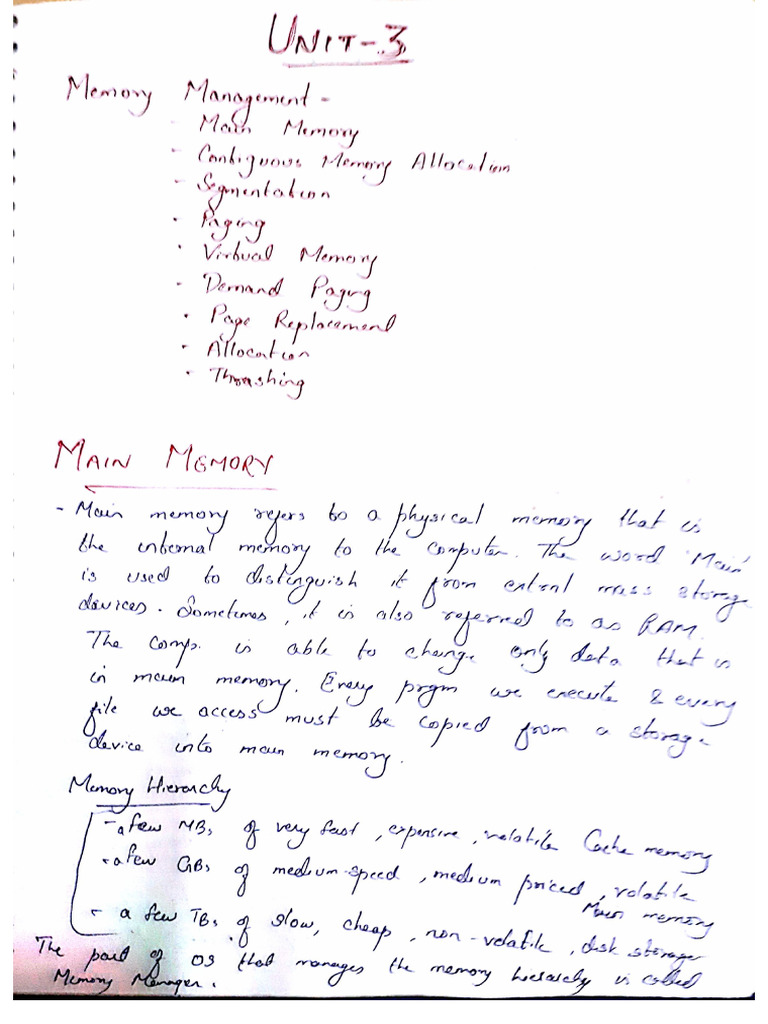 UNIT-3
Memory Management -
- Main Memory
- Contiguous Memory Allocation
- Segmentation
- Paging
- Virtual Memory
- Demand Paging
- Page Replacement
- Allocation
- Thrashing
MAIN MEMORY
- Main memory refers to a physical memory that is
the internal memory to the computer. The word 'Main'
is used to distinguish it from extrnl mass storage
devices. Sometimes, it is also referred to as RAM.
The comp. is able to change only data that is
in main memory. Every prgm we execute & every
file we access must be copied from a storage
device into main memory.
Memory Hierarchy
- a few MBs of very fast, expensive, volatile Cache memory
- a few GBs of medium-speed, medium priced, volatile
Main memory
- a few TBs of slow, cheap, non-volatile, disk storage
The part of OS that manages the memory hierarchy is called
Memory Manager.